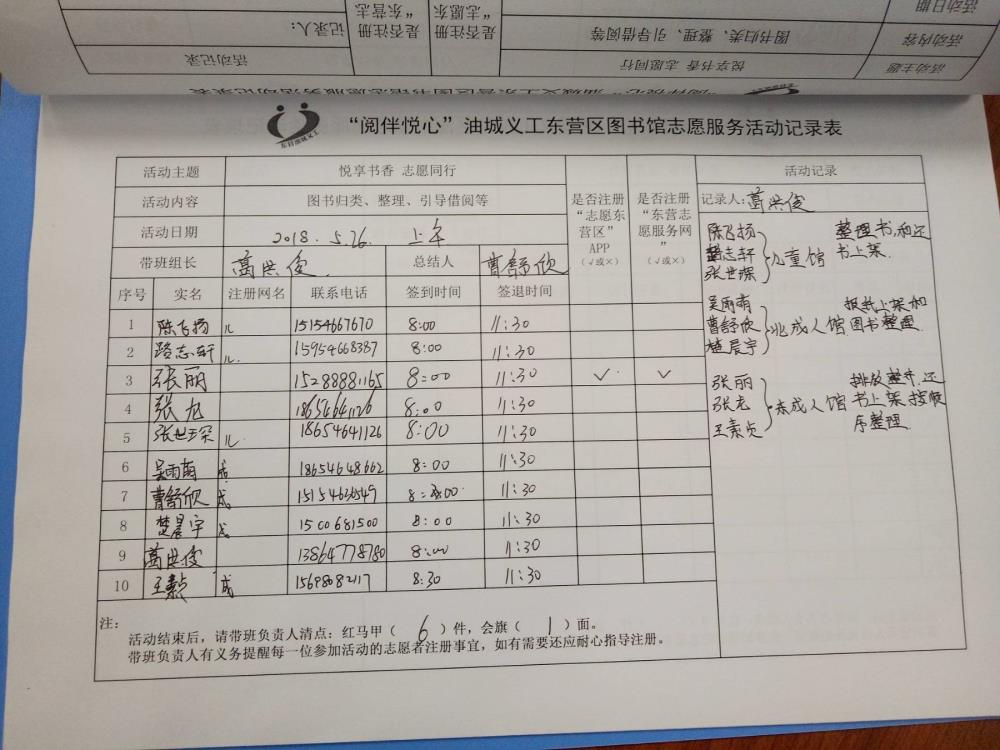 活动日期
活动内容 图书归类、整理、引导借阅等 是否注册 是否注册 记录人：
活动主题 悦享书香 志愿同行 活动记录
“阅伴悦心”油城义工东营区图书馆志愿服务活动记录表
活动主题 悦享书香 志愿同行 活动记录
活动内容 图书归类、整理、引导借阅等 是否注册“志愿东营区”APP（√或×） 是否注册“东营志愿服务网”（√或×） 记录人：葛洪俊
活动日期 2018.5.26. 上午
带班组长 葛洪俊 总结人 曹舒欣
序号 实名 注册网名 联系电话 签到时间 签退时间
1 陈飞扬 儿 15154667670 8:00 11:30
2 路志轩 儿. 15954668387 8:00 11:30
3 张丽 15288881165 8:00 11:30 √ √
4 张旭 18654641126 8:00 11:30
5 张世琛 儿. 18654641126 8:00 11:30
6 吴雨萌 成 18654648662 8:00 11:30
7 曹舒欣 成 8:00 11:30
8 楚晨宇 成 1500681500 8:00 11:30
9 葛洪俊 13864778780 8:00 11:30
10 王素贞 成 15698082117 8:30 11:30
陈飞扬
路志轩
张世琛
儿童馆 整理图书,和还
书上架.
吴雨萌
曹舒欣
楚晨宇
北成人馆 报纸上架和
图书整理.
张丽
张龙
王素贞
东成人馆 排放整齐.还
书上架按顺
序整理.
注：
活动结束后，请带班负责人清点：红马甲（ 6 ）件，会旗（ 1 ）面。
带班负责人有义务提醒每一位参加活动的志愿者注册事宜，如有需要还应耐心指导注册。